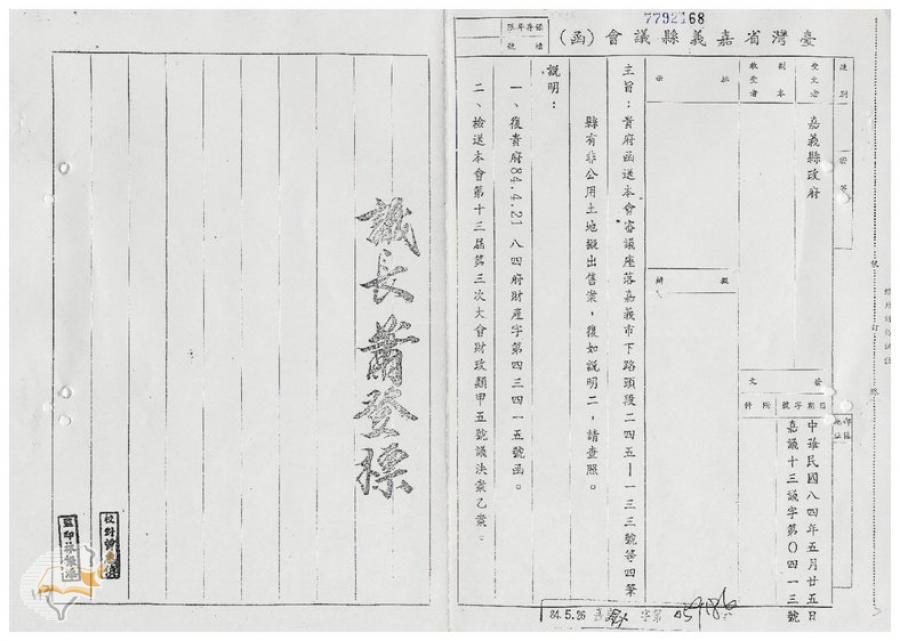 7792168
臺灣省嘉義縣議會(函)
保存年限
檔號
速別
密等
受文者
嘉義縣政府
副本
收受者
批示
擬辦
發文
日期
字號
附件
中華民國八四年五月廿五日
嘉議十三議字第0四一三號
主旨：貴府函送本會審議座落嘉義市下路頭段二四五—一三三號等四筆
縣有非公用土地擬出售案，復如說明二，請查照。
說明：
一、復貴府84.4.21八四府財產字第四三四一五號函。
二、檢送本會第十三屆第三次大會財政類甲五號議決案乙案。
議長蕭登標
校對
監印
84.5.26
字
第